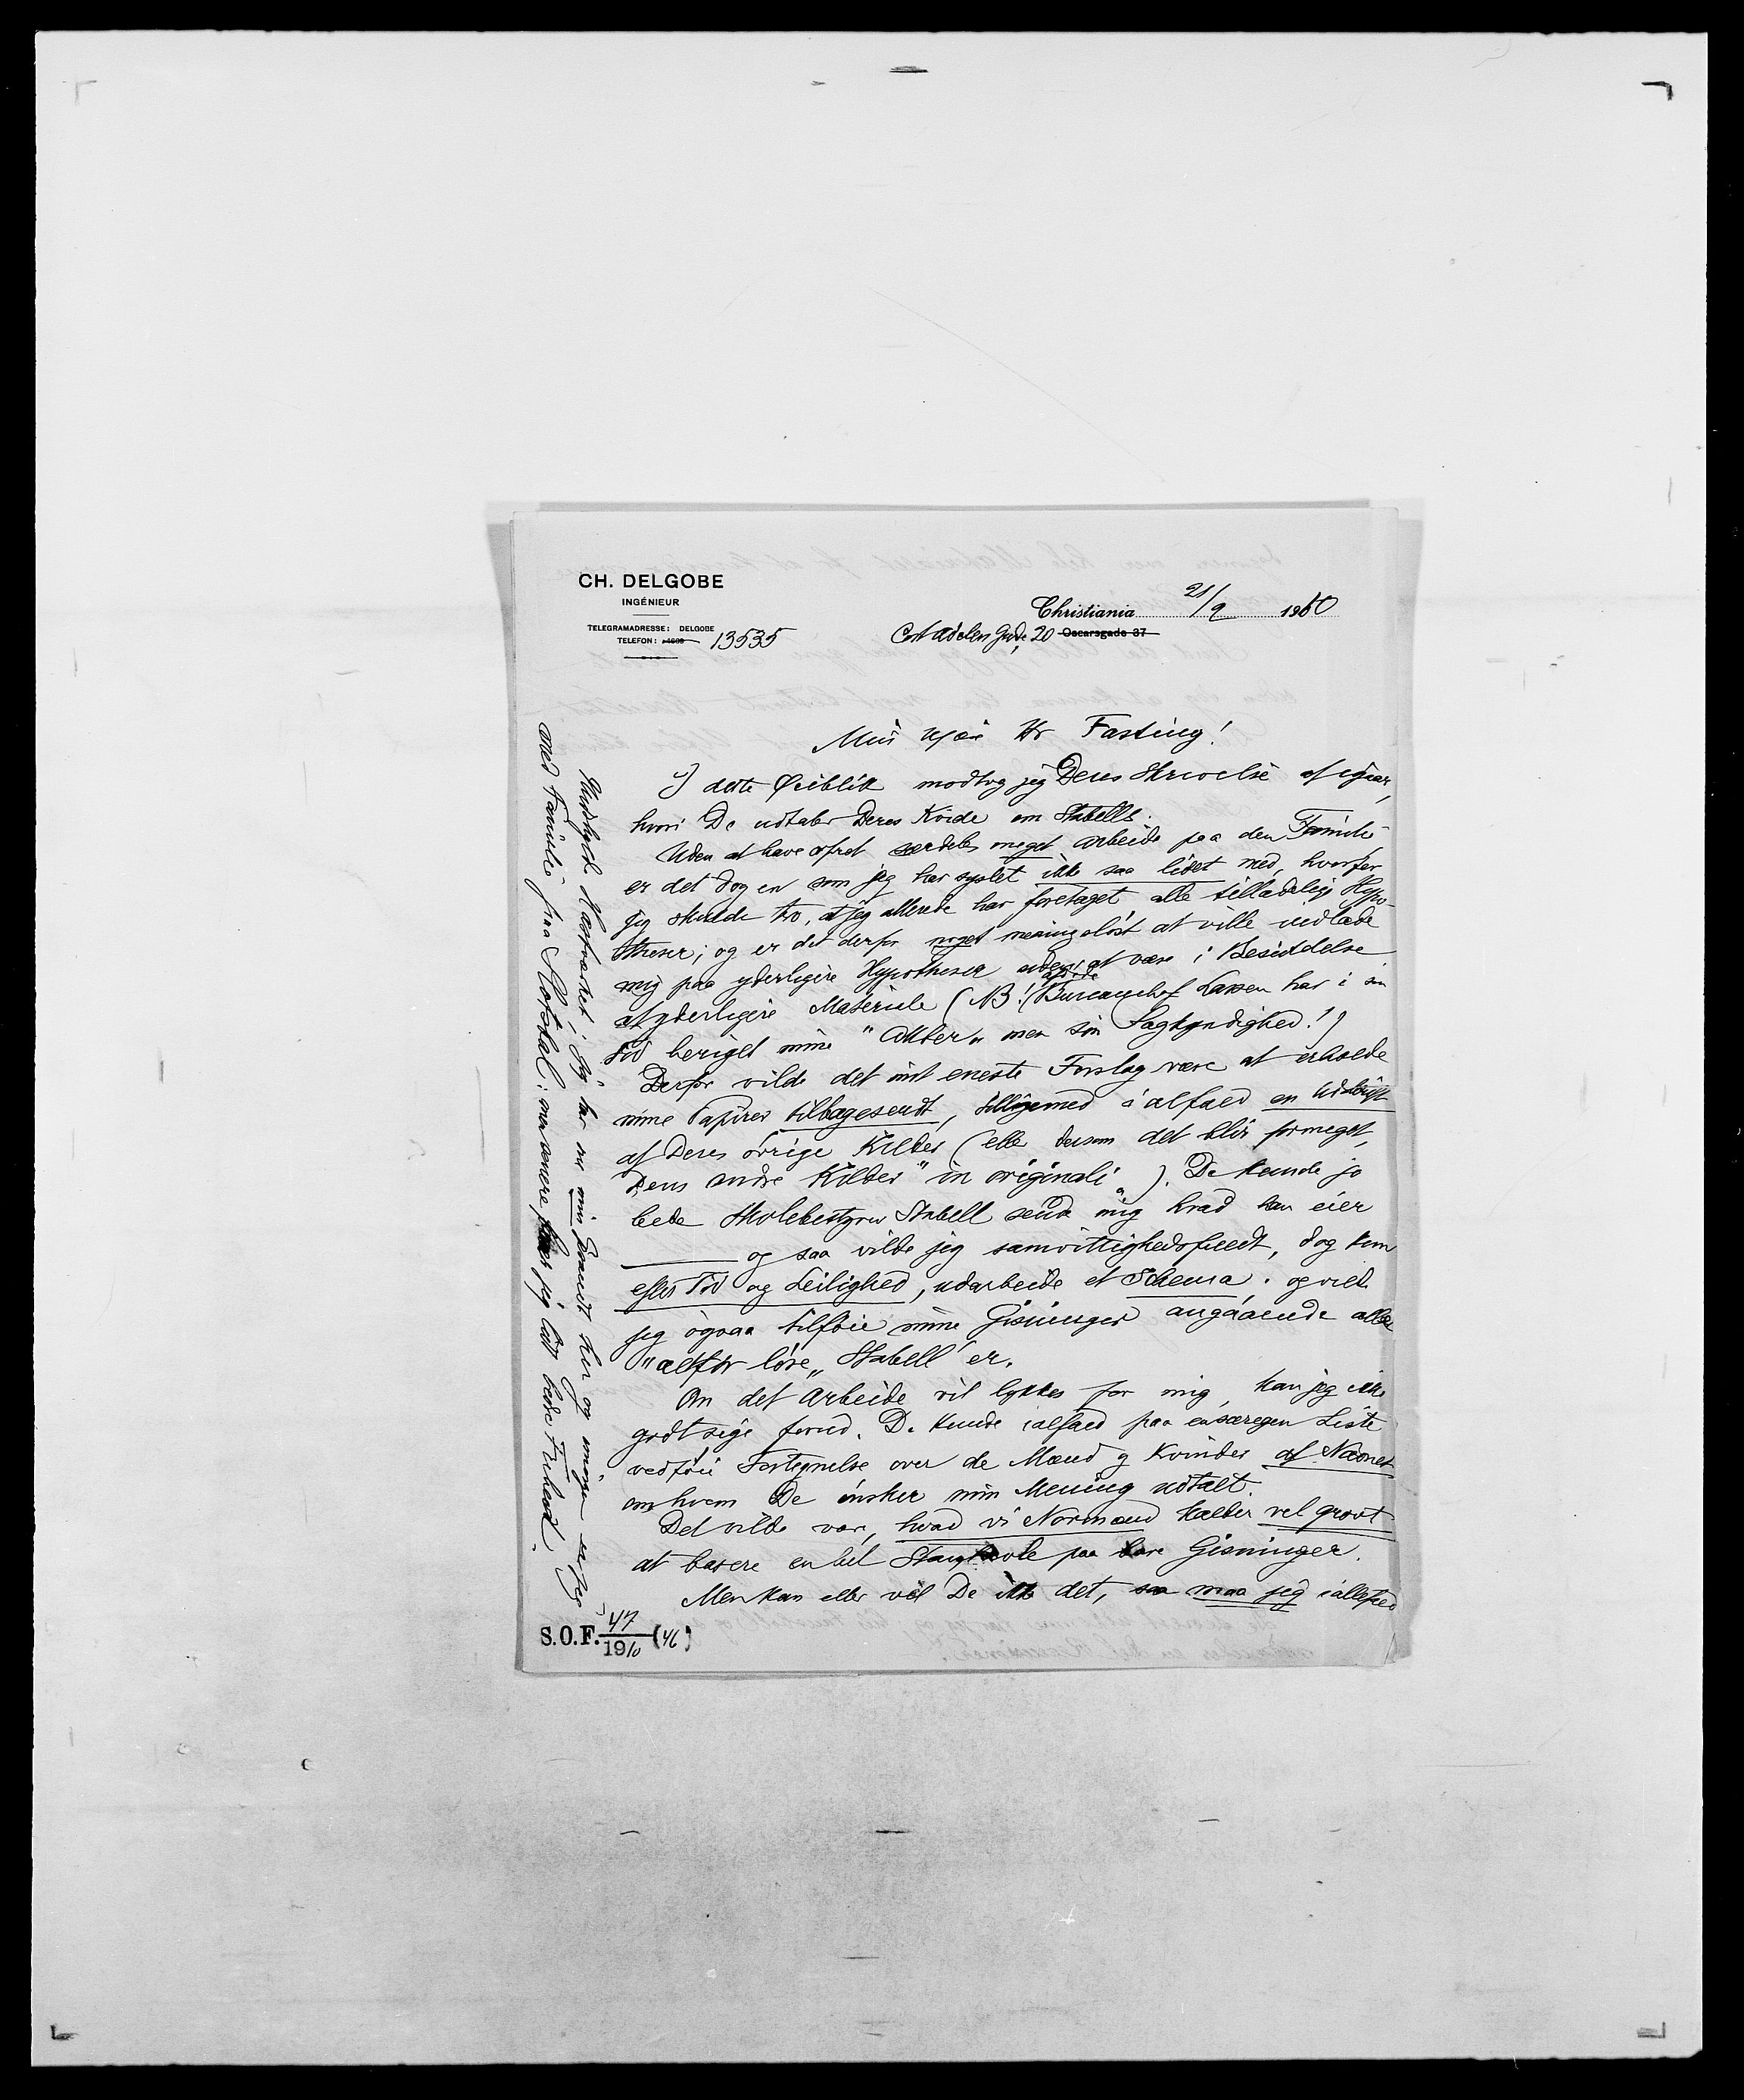 CH. DELGOBE
INGÉNIEUR
TELEGRAMADRESSE: DELGOBE
TELEFON: 13535
Christiania 21/9 1910
Cort Adelers Gade, 20 Oscarsgade 37
Min kjære Hr Fasting!
I dette Øieblik modtog jeg Deres Skrivelse af igaar,
hvori De udtaler Deres Kvide om Stabells.
Uden at have ofret særdeles meget arbeide paa den Familie
er det dog en som jeg har syslet ikke saa lidet med, hvorfor
jeg skulde tro, at jeg allerede har foretaget alle tilladelige Hypo-
theser; og er det derfor noget meningsløst at ville indlade
mig paa yderligere Hypotheser uden at være i Besiddelse
af yderligere Materiale (NB! afdøde Bureauchef Lassen har i sin
Tid beriget mine "Akter" med sin Sagkyndighed!)
Derfor vilde det mit eneste Forslag være at erholde
mine Papirer tilbagesendt, tilligemed i alfald en Udskrift
af Deres øvrige Kilder (eller dersom det blir formeget,
Deres andre Kilder "in originali"). De kunde jo
bede Skolebestyrer Stabell sende mig hvad han eier
og saa vilde jeg samvittighedsfuldt, dog kun
efter Tid og Leilighed, udarbeide et Schema; og vilde
jeg ogsaa tilføie mine Gisninger angaaende alle
"altfor løse" Stabell'er.
Om det Arbeide vil lykkes for mig, kan jeg ikke
godt sige forud. De kunde ialfald paa en særegen Liste
vedføie Fortegnelse over de Mænd og Kvinder af Navnet
om hvem De ønsker min Mening udtalt.
Det vilde være, hvad vi Normænd kalder vel grovt
at basere en hel Stamtavle paa bare Gisninger.
Men kan eller vil De ikke det, saa maa jeg iallefald
S.O.F. 47/1910 (46)
Undskyld Hastværket! Jeg har nu min Forstand her og imorgen er jeg
med Familie fra Slotsdal: men senere faar jeg lidt bedre Frihed.